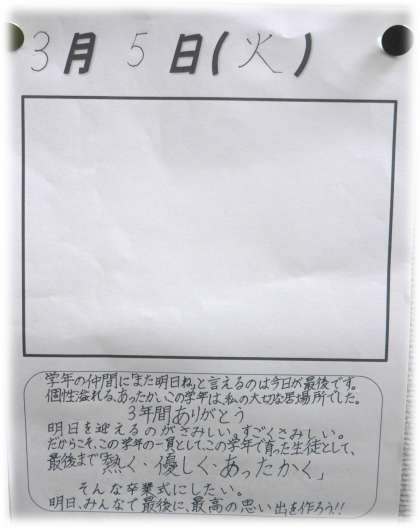 3月5日(火)
学年の仲間に「また明日ね」と言えるのは今日が最後です。
個性溢れる、あったかいこの学年は、私の大切な居場所でした。
3年間ありがとう
明日を迎えるのがさみしい。すごくさみしい。
だからこそ、この学年の一員として、この学年で育った生徒として、
最後まで「熱く・優しく・あったかく」
そんな卒業式にしたい。
明日、みんなで最後に、最高の思い出を作ろう!!